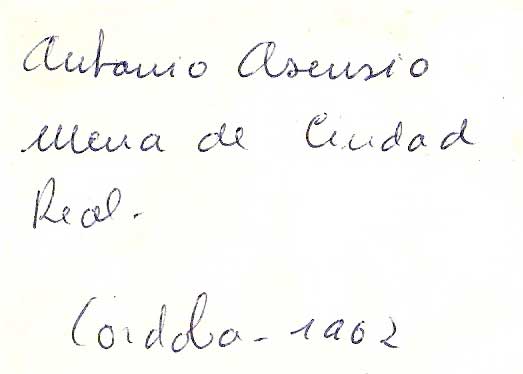 Antonio Asensio
Mena de Ciudad
Real.
Córdoba - 1962